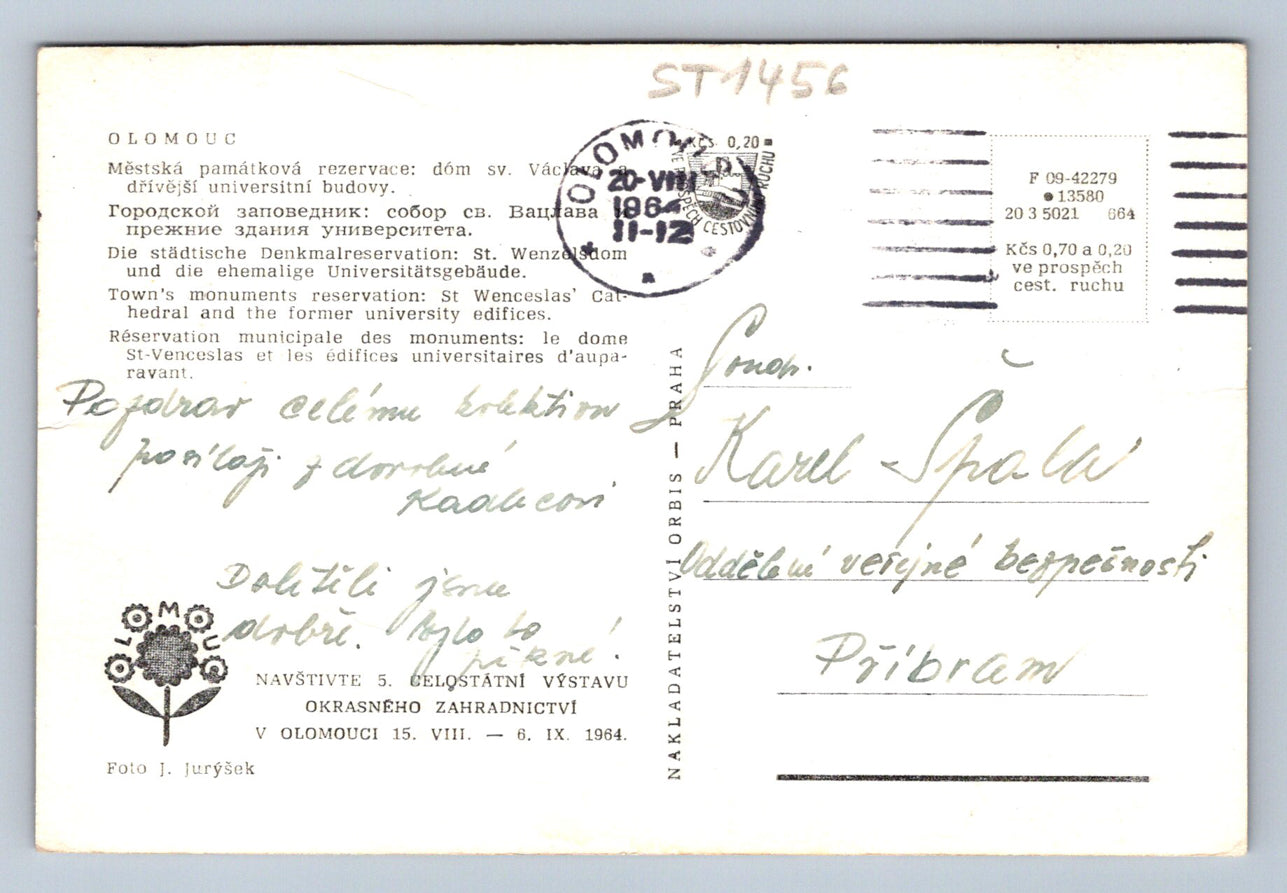 ST1456
OLOMOUC
Městská památková rezervace: dóm sv. Václava a
dřívější universitní budovy.
Городской заповедник: собор св. Вацлава и
прежние здания университета.
Die städtische Denkmalreservation: St. Wenzelsdom
und die ehemalige Universitätsgebäude.
Town's monuments reservation: St Wenceslas' Cat-
hedral and the former university edifices.
Réservation municipale des monuments: le dome
St-Venceslas et les édifices universitaires d'aupa-
ravant.
Pozdrav celému kolektivu
posílají z dovolené
Kadlecovi
Doletěli jsme
dobře. Bylo to
pěkné!
OLOMOUC
NAVŠTIVTE 5. CELOSTÁTNÍ VÝSTAVU
OKRASNÉHO ZAHRADNICTVÍ
V OLOMOUCI 15. VIII. — 6. IX. 1964.
Foto J. Jurýšek
NAKLADATELSTVÍ ORBIS — PRAHA
OLOMOUC
20-VIII
1964
11-12
Kčs 0,20
VE PROSPĚCH CESTOVNÍHO RUCHU
F 09-42279
13580
20 3 5021 664
Kčs 0,70 a 0,20
ve prospěch
cest. ruchu
Soudr.
Karel Špala
Oddělení veřejné bezpečnosti
Příbram